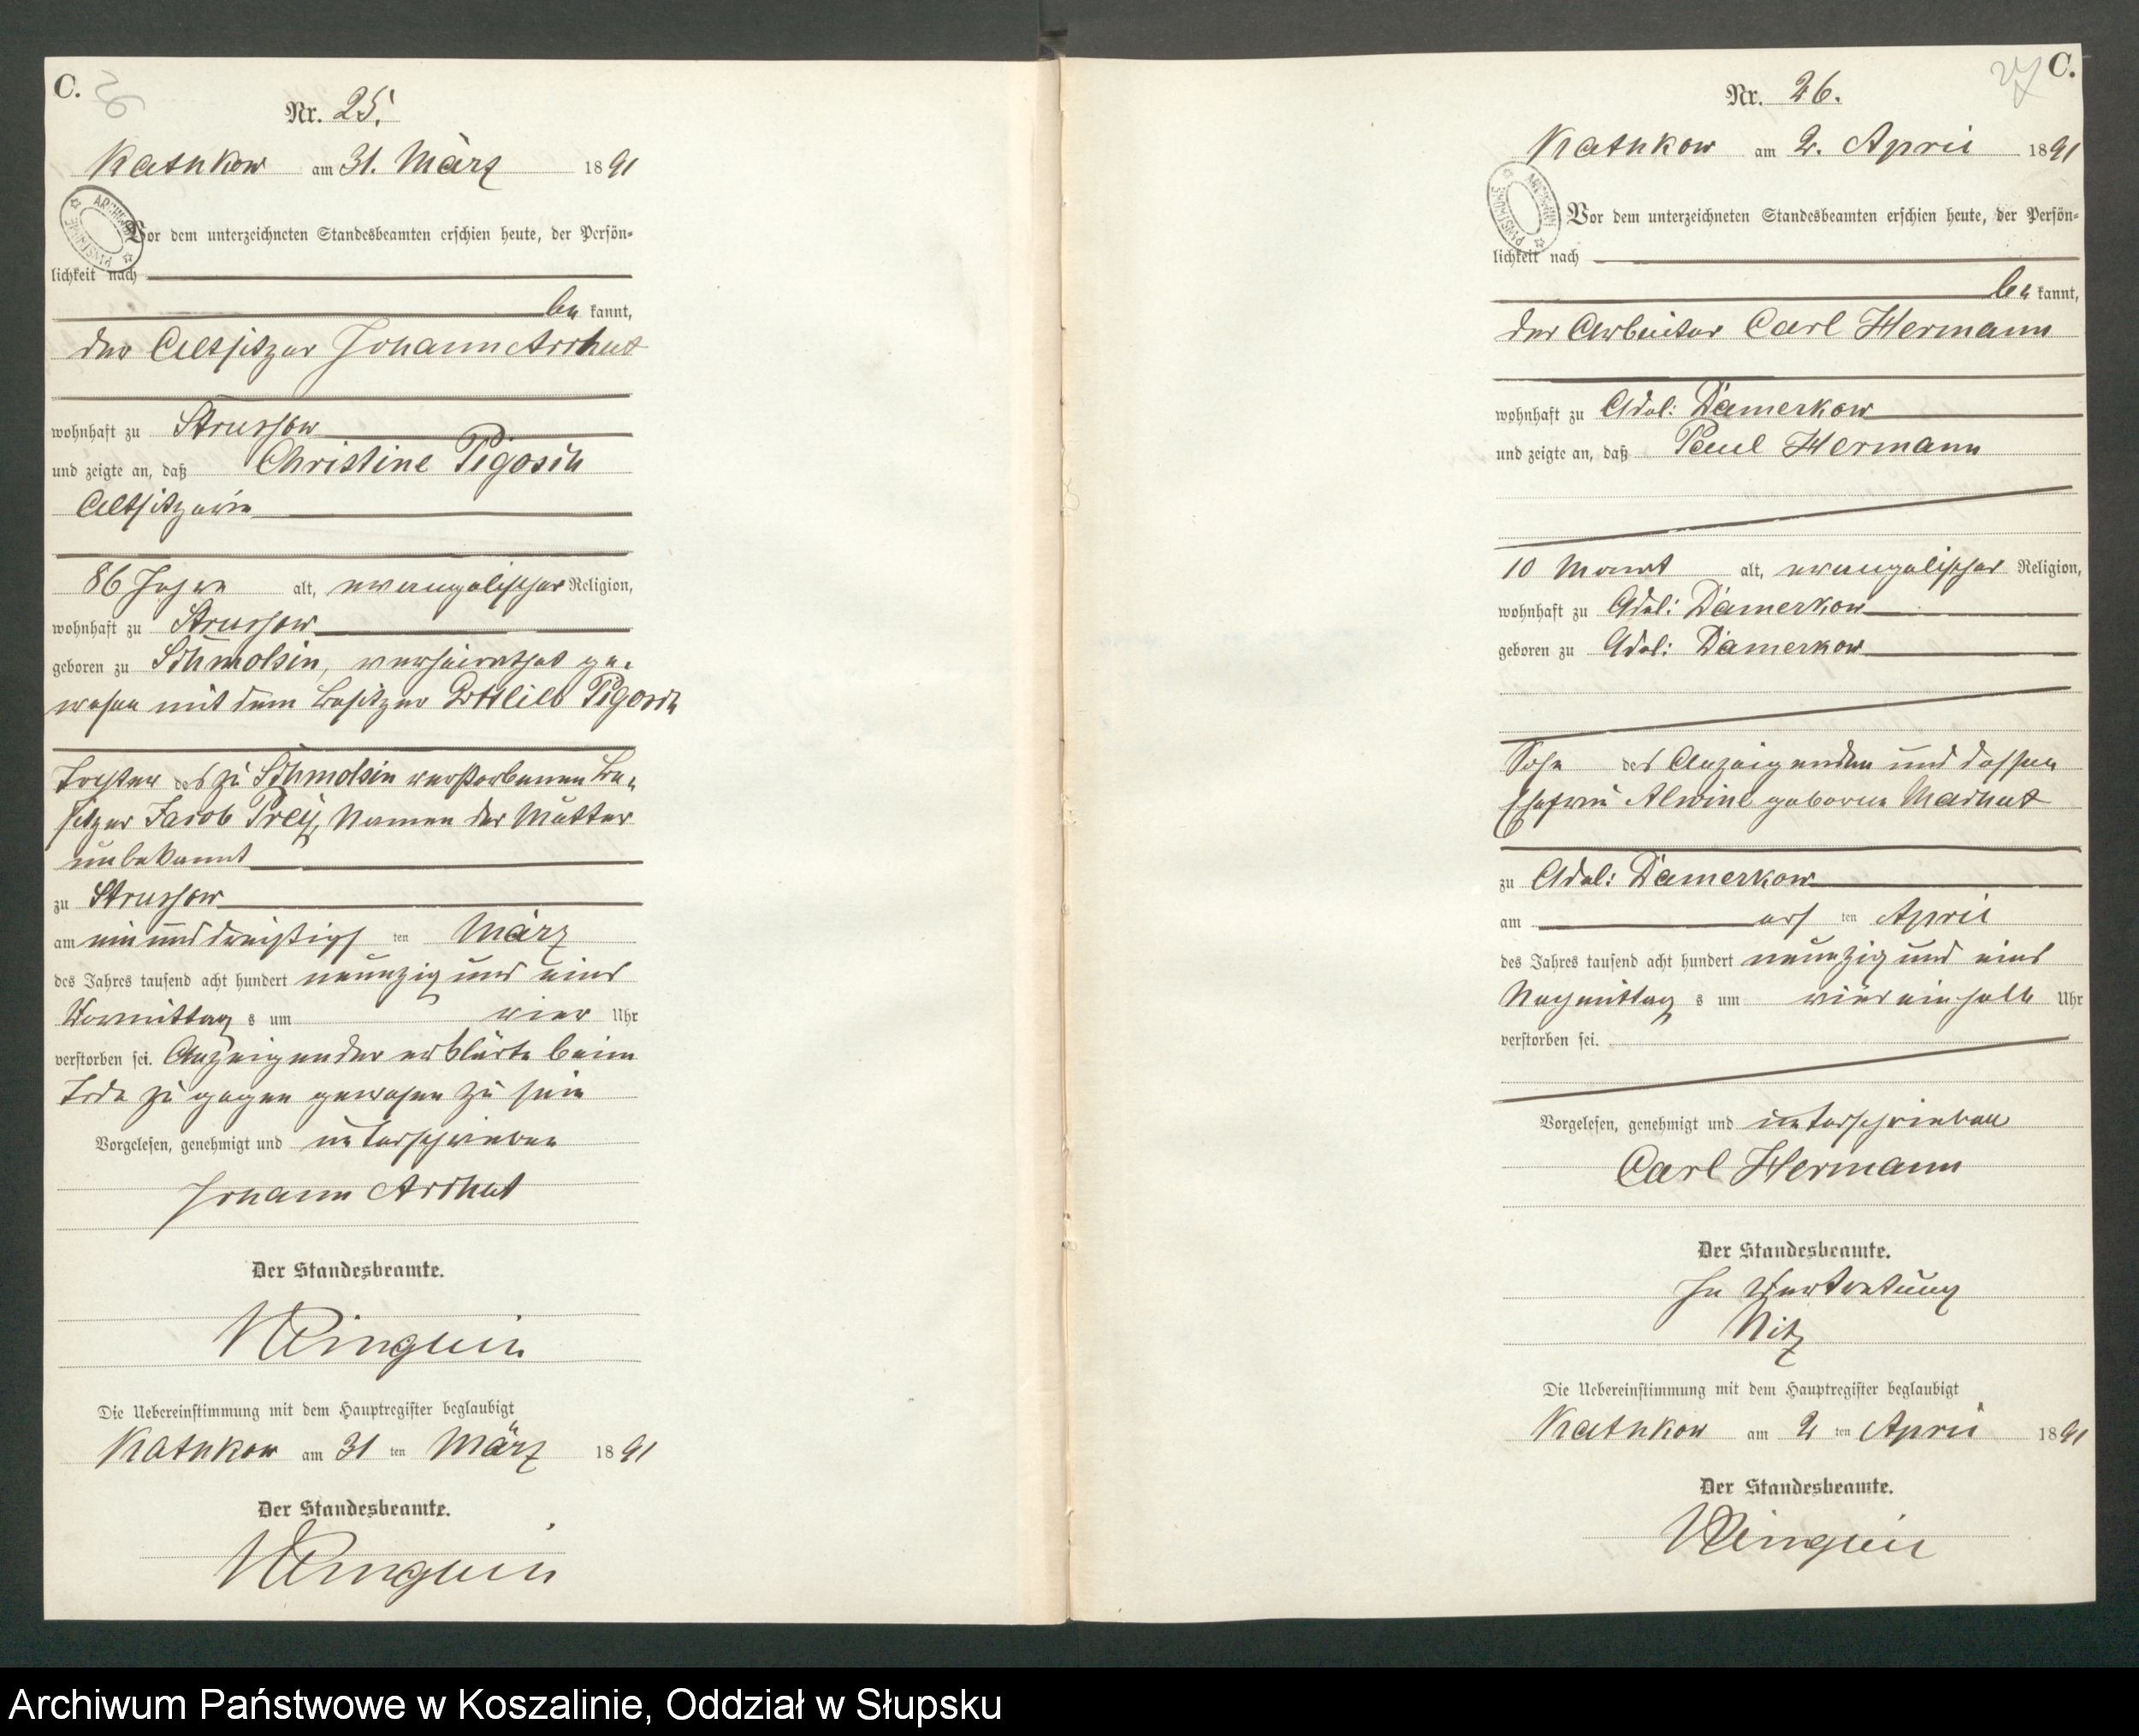 C.
Nr. 25.
Rathkow am 31. März 1891
Vor dem unterzeichneten Standesbeamten erschien heute, der Persön-
lichkeit nach
be kannt,
der Altsitzer Johann
wohnhaft zu Strussow
und zeigte an, daß Christine Pigorsch
Altsitzerin
86 Jahre alt, evangelischer Religion,
wohnhaft zu Strussow
geboren zu Schmolsin, verheirathet ge-
wesen mit dem Besitzer Gottlieb Pigorsch
Tochter des zu Schmolsin verstorbenen Be-
sitzer Jacob Namen der Mutter
unbekannt
zu Strussow
am ein und dreißigs ten März
des Jahres tausend acht hundert neunzig und eins
Vormittag s um vier Uhr
verstorben sei. Anzeigender erklärte beim
Tode zu gegen gewesen zu sein
Vorgelesen, genehmigt und unterschrieben
Johann
Der Standesbeamte.
Die Uebereinstimmung mit dem Hauptregister beglaubigt
Rathkow am 31 ten März 1891
Der Standesbeamte.
27 C.
Nr. 26.
Rathkow am 2. April 1891
ARCHIWUM PAŃSTWOWE
Vor dem unterzeichneten Standesbeamten erschien heute, der Persön-
lichkeit nach
be kannt,
der Arbeiter Carl Hermann
wohnhaft zu Adel: Damerkow
und zeigte an, daß Paul Hermann
10 Monat alt, evangelischer Religion,
wohnhaft zu Adel: Damerkow
geboren zu Adel: Damerkow
Sohn des Anzeigenden und dessen
Ehefrau Alwine geborne
zu Adel: Damerkow
am ers ten April
des Jahres tausend acht hundert neunzig und eins
Nachmittag s um vier ein halb Uhr
verstorben sei.
Vorgelesen, genehmigt und unterschrieben
Carl Hermann
Der Standesbeamte.
In Vertretung
Nitz
Die Uebereinstimmung mit dem Hauptregister beglaubigt
Rathkow am 2 ten April 1891
Der Standesbeamte.
Archiwum Państwowe w Koszalinie, Oddział w Słupsku